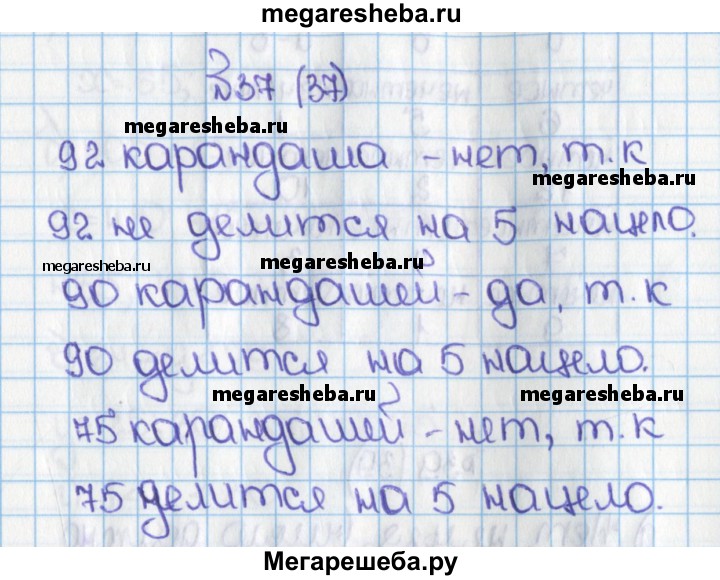 megaresheba.ru
№37 (37)
megaresheba.ru
92 карандаша - нет, т.к
megaresheba.ru
92 не делится на 5 нацело.
megaresheba.ru
megaresheba.ru
90 карандашей - да, т.к
90 делится на 5 нацело.
megaresheba.ru
megaresheba.ru
75 карандашей - нет, т.к
75 делится на 5 нацело.
Мегарешеба.ру